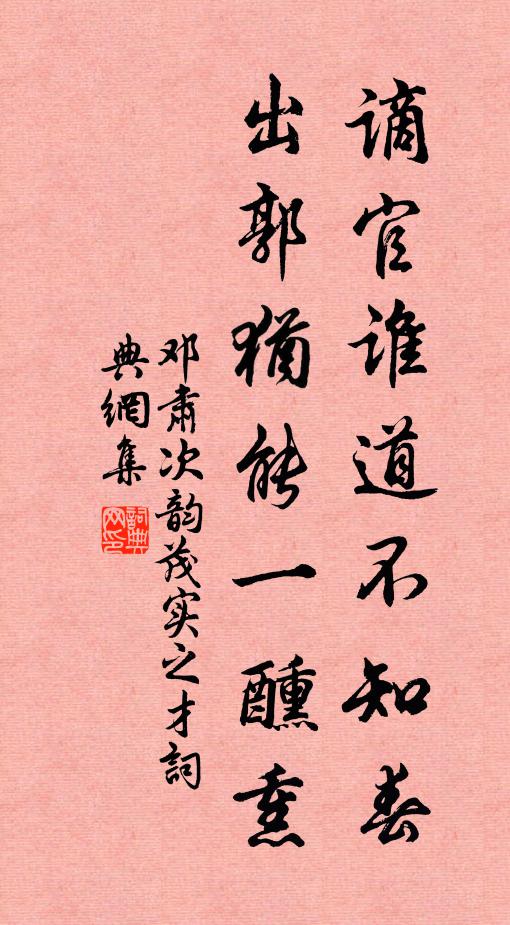 谪官谁道不知春
出郭猶能一醺熏
邓肅次韵茂实之才詞
典網集
詞典网印